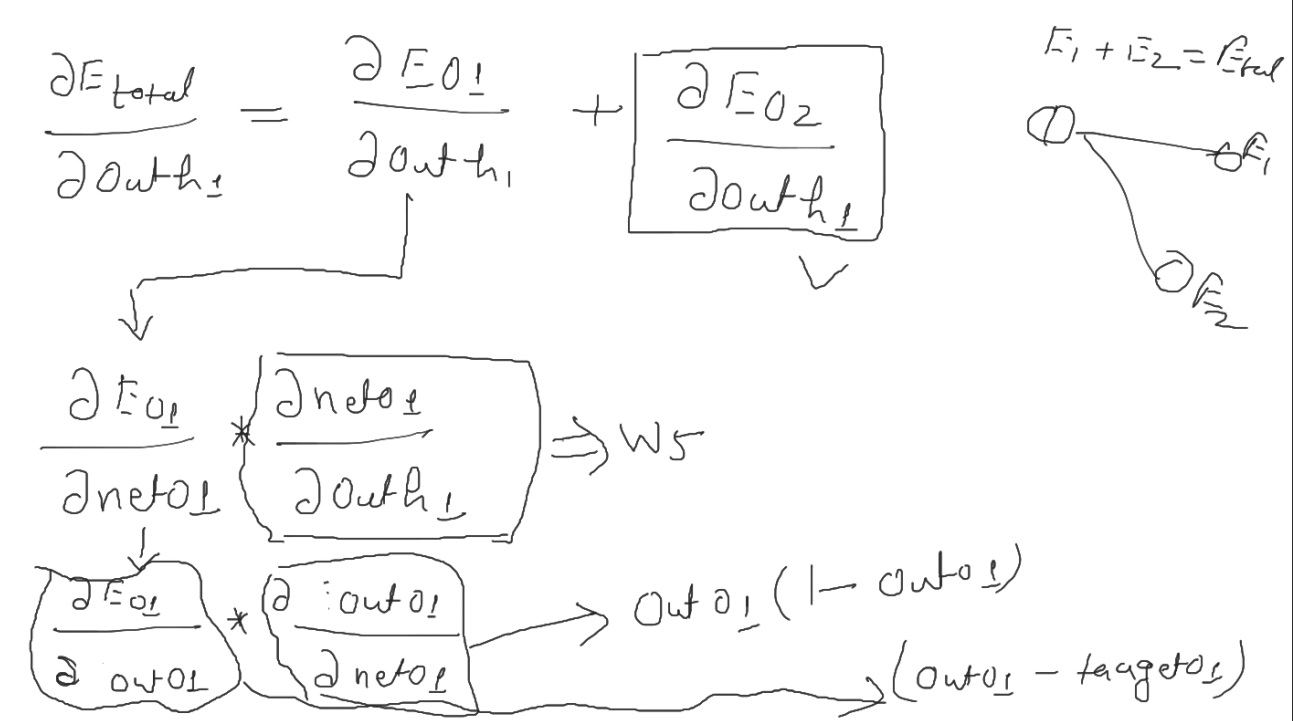 ∂E_total/∂outh_1 = ∂E_O1/∂outh_1 + ∂E_O2/∂outh_1
E_1 + E_2 = E_total
E_1
E_2
∂E_O1/∂netO1 * ∂netO1/∂outh_1 ⇒ W5
∂E_O1/∂outO1 * ∂outO1/∂netO1 → outO1 (1 - outO1)
(outO1 - targetO1)